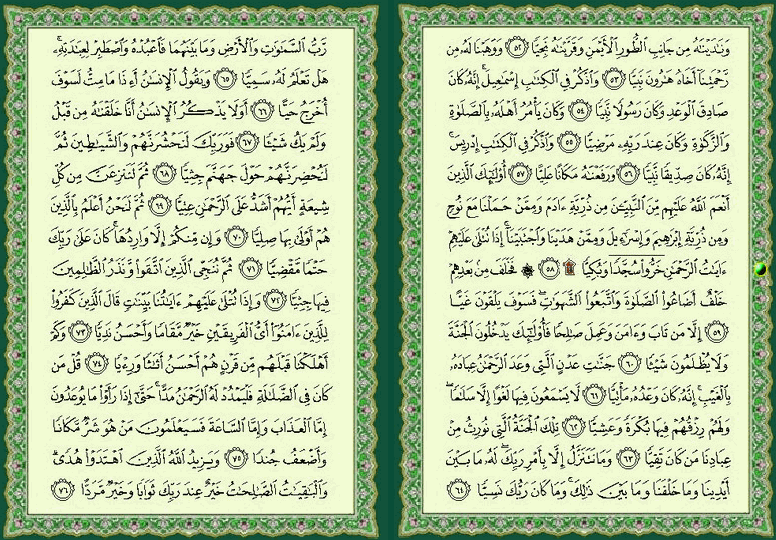 وَنَٰدَيْنَٰهُ مِن جَانِبِ ٱلطُّورِ ٱلْأَيْمَنِ وَقَرَّبْنَٰهُ نَجِيًّا ﴿٥٢﴾ وَوَهَبْنَا لَهُۥ مِن
رَّحْمَتِنَآ أَخَاهُ هَٰرُونَ نَبِيًّا ﴿٥٣﴾ وَٱذْكُرْ فِى ٱلْكِتَٰبِ إِسْمَٰعِيلَ ۚ إِنَّهُۥ كَانَ
صَادِقَ ٱلْوَعْدِ وَكَانَ رَسُولًا نَّبِيًّا ﴿٥٤﴾ وَكَانَ يَأْمُرُ أَهْلَهُۥ بِٱلصَّلَوٰةِ
وَٱلزَّكَوٰةِ وَكَانَ عِندَ رَبِّهِۦ مَرْضِيًّا ﴿٥٥﴾ وَٱذْكُرْ فِى ٱلْكِتَٰبِ إِدْرِيسَ ۚ
إِنَّهُۥ كَانَ صِدِّيقًا نَّبِيًّا ﴿٥٦﴾ وَرَفَعْنَٰهُ مَكَانًا عَلِيًّا ﴿٥٧﴾ أُو۟لَٰٓئِكَ ٱلَّذِينَ
أَنْعَمَ ٱللَّهُ عَلَيْهِم مِّنَ ٱلنَّبِيِّـۧنَ مِن ذُرِّيَّةِ ءَادَمَ وَمِمَّنْ حَمَلْنَا مَعَ نُوحٍ
وَمِن ذُرِّيَّةِ إِبْرَٰهِيمَ وَإِسْرَٰٓءِيلَ وَمِمَّنْ هَدَيْنَا وَٱجْتَبَيْنَآ ۚ إِذَا تُتْلَىٰ عَلَيْهِمْ
ءَايَٰتُ ٱلرَّحْمَٰنِ خَرُّوا۟ سُجَّدًا وَبُكِيًّا ۩ ﴿٥٨﴾ ۞ فَخَلَفَ مِنۢ بَعْدِهِمْ
خَلْفٌ أَضَاعُوا۟ ٱلصَّلَوٰةَ وَٱتَّبَعُوا۟ ٱلشَّهَوَٰتِ ۖ فَسَوْفَ يَلْقَوْنَ غَيًّا
﴿٥٩﴾ إِلَّا مَن تَابَ وَءَامَنَ وَعَمِلَ صَٰلِحًا فَأُو۟لَٰٓئِكَ يَدْخُلُونَ ٱلْجَنَّةَ
وَلَا يُظْلَمُونَ شَيْـًٔا ﴿٦٠﴾ جَنَّٰتِ عَدْنٍ ٱلَّتِى وَعَدَ ٱلرَّحْمَٰنُ عِبَادَهُۥ
بِٱلْغَيْبِ ۚ إِنَّهُۥ كَانَ وَعْدُهُۥ مَأْتِيًّا ﴿٦١﴾ لَّا يَسْمَعُونَ فِيهَا لَغْوًا إِلَّا سَلَٰمًا ۖ
وَلَهُمْ رِزْقُهُمْ فِيهَا بُكْرَةً وَعَشِيًّا ﴿٦٢﴾ تِلْكَ ٱلْجَنَّةُ ٱلَّتِى نُورِثُ مِنْ
عِبَادِنَا مَن كَانَ تَقِيًّا ﴿٦٣﴾ وَمَا نَتَنَزَّلُ إِلَّا بِأَمْرِ رَبِّكَ ۖ لَهُۥ مَا بَيْنَ
أَيْدِينَا وَمَا خَلْفَنَا وَمَا بَيْنَ ذَٰلِكَ ۚ وَمَا كَانَ رَبُّكَ نَسِيًّا ﴿٦٤﴾
رَّبُّ ٱلسَّمَٰوَٰتِ وَٱلْأَرْضِ وَمَا بَيْنَهُمَا فَٱعْبُدْهُ وَٱصْطَبِرْ لِعِبَٰدَتِهِۦ ۚ
هَلْ تَعْلَمُ لَهُۥ سَمِيًّا ﴿٦٥﴾ وَيَقُولُ ٱلْإِنسَٰنُ أَءِذَا مَا مِتُّ لَسَوْفَ
أُخْرَجُ حَيًّا ﴿٦٦﴾ أَوَلَا يَذْكُرُ ٱلْإِنسَٰنُ أَنَّا خَلَقْنَٰهُ مِن قَبْلُ
وَلَمْ يَكُ شَيْـًٔا ﴿٦٧﴾ فَوَرَبِّكَ لَنَحْشُرَنَّهُمْ وَٱلشَّيَٰطِينَ ثُمَّ
لَنُحْضِرَنَّهُمْ حَوْلَ جَهَنَّمَ جِثِيًّا ﴿٦٨﴾ ثُمَّ لَنَنزِعَنَّ مِن كُلِّ
شِيعَةٍ أَيُّهُمْ أَشَدُّ عَلَى ٱلرَّحْمَٰنِ عِتِيًّا ﴿٦٩﴾ ثُمَّ لَنَحْنُ أَعْلَمُ بِٱلَّذِينَ
هُمْ أَوْلَىٰ بِهَا صِلِيًّا ﴿٧٠﴾ وَإِن مِّنكُمْ إِلَّا وَارِدُهَا ۚ كَانَ عَلَىٰ رَبِّكَ
حَتْمًا مَّقْضِيًّا ﴿٧١﴾ ثُمَّ نُنَجِّى ٱلَّذِينَ ٱتَّقَوا۟ وَّنَذَرُ ٱلظَّٰلِمِينَ
فِيهَا جِثِيًّا ﴿٧٢﴾ وَإِذَا تُتْلَىٰ عَلَيْهِمْ ءَايَٰتُنَا بَيِّنَٰتٍ قَالَ ٱلَّذِينَ كَفَرُوا۟
لِلَّذِينَ ءَامَنُوٓا۟ أَىُّ ٱلْفَرِيقَيْنِ خَيْرٌ مَّقَامًا وَأَحْسَنُ نَدِيًّا ﴿٧٣﴾ وَكَمْ
أَهْلَكْنَا قَبْلَهُم مِّن قَرْنٍ هُمْ أَحْسَنُ أَثَٰثًا وَرِءْيًا ﴿٧٤﴾ قُلْ مَن
كَانَ فِى ٱلضَّلَٰلَةِ فَلْيَمْدُدْ لَهُ ٱلرَّحْمَٰنُ مَدًّا ۚ حَتَّىٰٓ إِذَا رَأَوْا۟ مَا يُوعَدُونَ
إِمَّا ٱلْعَذَابَ وَإِمَّا ٱلسَّاعَةَ فَسَيَعْلَمُونَ مَنْ هُوَ شَرٌّ مَّكَانًا
وَأَضْعَفُ جُندًا ﴿٧٥﴾ وَيَزِيدُ ٱللَّهُ ٱلَّذِينَ ٱهْتَدَوْا۟ هُدًى ۗ
وَٱلْبَٰقِيَٰتُ ٱلصَّٰلِحَٰتُ خَيْرٌ عِندَ رَبِّكَ ثَوَابًا وَخَيْرٌ مَّرَدًّا ﴿٧٦﴾